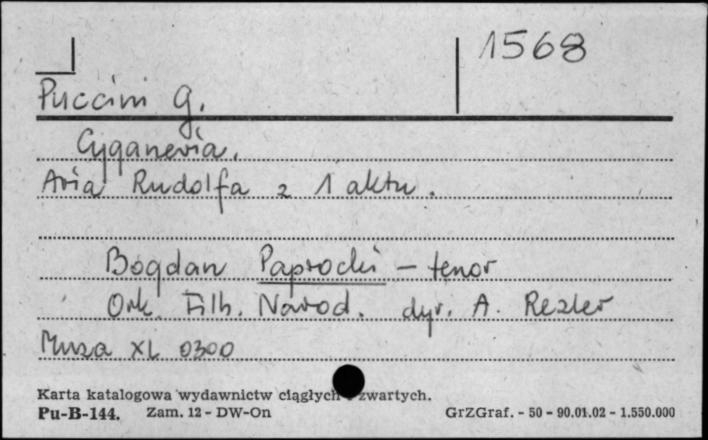 1568
Puccini G.
Cyganeria.
Aria Rudolfa z 1 aktu.
Bogdan Paprocki - tenor
Ork. Filh. Narod. dyr. A. Rezler
Muza XL 0300
Karta katalogowa wydawnictw ciągłych zwartych.
Pu-B-144. Zam. 12 - DW-On GrZGraf. - 50 - 90.01.02 - 1.550.000